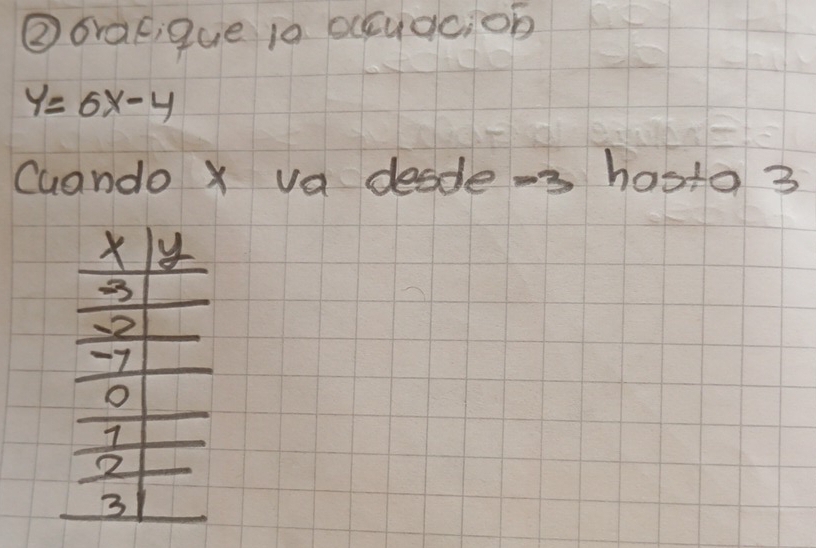 ② Grafique la ecuación
y = 6x - 4
Cuando x va desde -3 hasta 3
x | y
-3
-2
-1
0
1
2
3